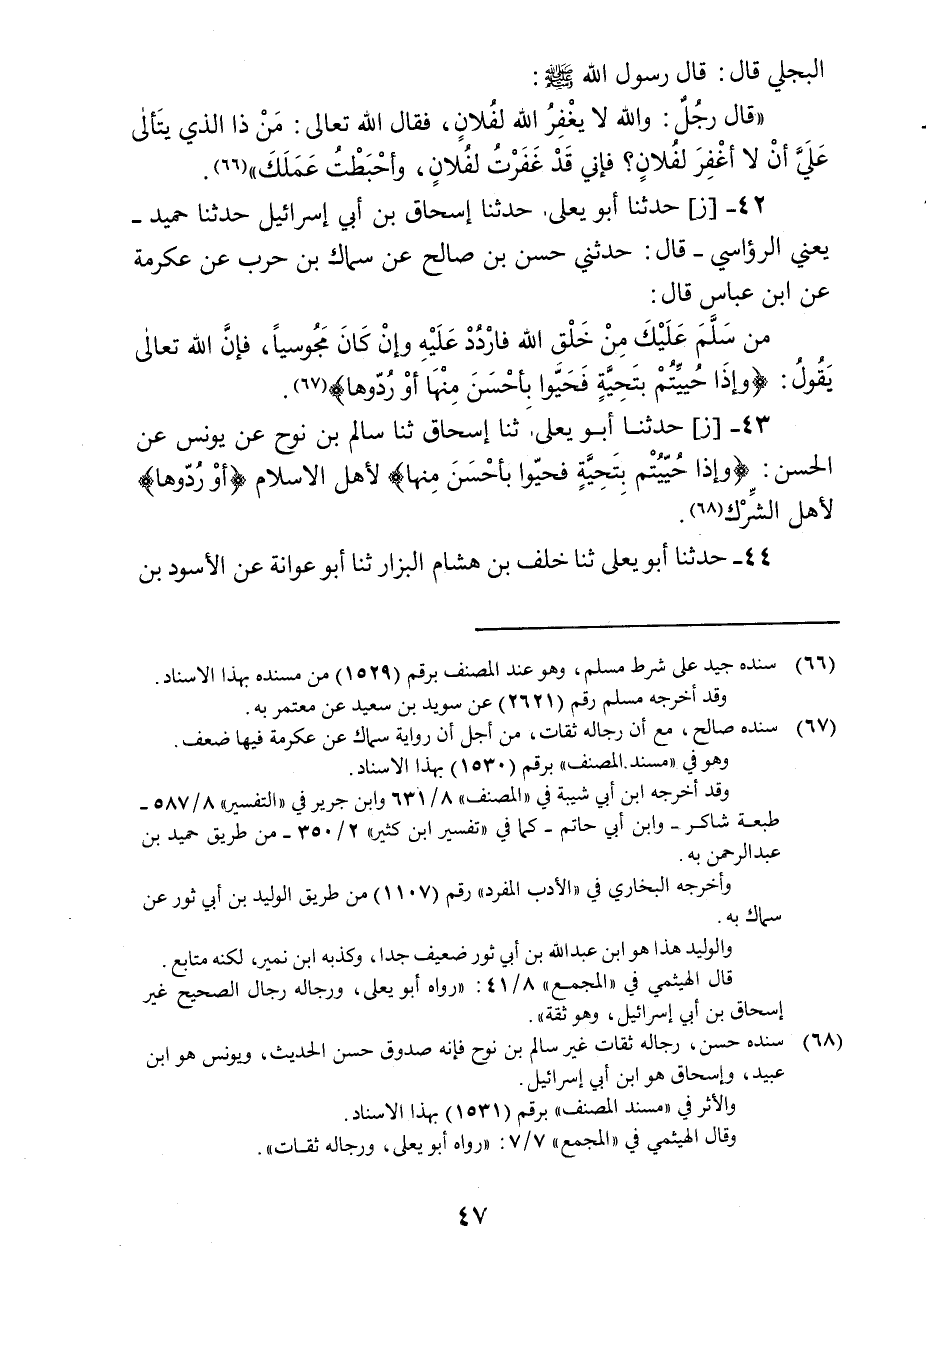 البجلي قال: قال رسول الله ﷺ:
«قال رجُلٌ: والله لا يغْفِرُ الله لفُلانٍ، فقال الله تعالى: مَنْ ذا الذي يتَألى
عَلَيَّ أنْ لا أغْفِرَ لفُلانٍ؟ فإني قَدْ غَفَرْتُ لفُلانٍ، وأحْبَطْتُ عَمَلَكَ»(٦٦).
٤٢ـ [ز] حدثنا أبو يعلى، حدثنا إسحاق بن أبي إسرائيل حدثنا حميد ـ
يعني الرؤاسي ـ قال: حدثني حسن بن صالح عن سماك بن حرب عن عكرمة
عن ابن عباس قال:
من سَلَّمَ عَلَيْكَ مِنْ خَلْقِ الله فارْدُدْ عَلَيْهِ وإنْ كَانَ مَجُوسياً، فإنَّ الله تعالى
يَقُولُ: ﴿وإذَا حُيِيتُمْ بتَحيَّةٍ فَحَيّوا بأحْسَنَ مِنْهَا أوْ رُدّوها﴾(٦٧).
٤٣ـ [ز] حدثنا أبو يعلى، ثنا إسحاق ثنا سالم بن نوح عن يونس عن
الحسن: ﴿وإذا حُيّيتُم بتَحيَّةٍ فحيّوا بأحْسَنَ مِنها﴾ لأهل الاسلام ﴿أوْ رُدّوها﴾
لأهل الشِّرْك(٦٨).
٤٤ـ حدثنا أبو يعلى ثنا خلف بن هشام البزار ثنا أبو عوانة عن الأسود بن
(٦٦) سنده جيد على شرط مسلم، وهو عند المصنف برقم (١٥٢٩) من مسنده بهذا الاسناد.
وقد أخرجه مسلم رقم (٢٦٢١) عن سويد بن سعيد عن معتمر به.
(٦٧) سنده صالح، مع أن رجاله ثقات، من أجل أن رواية سماك عن عكرمة فيها ضعف.
وهو في «مسند المصنف» برقم (١٥٣٠) بهذا الاسناد.
وقد أخرجه ابن أبي شيبة في «المصنف» ٦٣١/٨ وابن جرير في «التفسير» ٥٨٧/٨ ـ
طبعة شاكر ـ وابن أبي حاتم ـ كما في «تفسير ابن كثير» ٣٥٠/٢ ـ من طريق حميد بن
عبدالرحمن به.
وأخرجه البخاري في «الأدب المفرد» رقم (١١٠٧) من طريق الوليد بن أبي ثور عن
سماك به.
والوليد هذا هو ابن عبدالله بن أبي ثور ضعيف جدا، وكذبه ابن نمير، لكنه متابع.
قال الهيثمي في «المجمع» ٤١/٨: «رواه أبو يعلى، ورجاله رجال الصحيح غير
إسحاق بن أبي إسرائيل، وهو ثقة».
(٦٨) سنده حسن، رجاله ثقات غير سالم بن نوح فإنه صدوق حسن الحديث، ويونس هو ابن
عبيد، وإسحاق هو ابن أبي إسرائيل.
والأثر في «مسند المصنف» برقم (١٥٣١) بهذا الاسناد.
وقال الهيثمي في «المجمع» ٧/٧: «رواه أبو يعلى، ورجاله ثقات».
٤٧